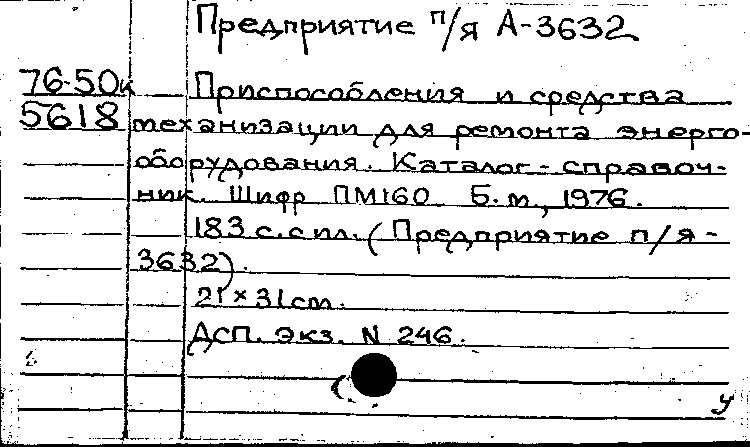 Предприятие п/я А-3632
76-50к Приспособления и средства
5618 механизации для ремонта энерго-
оборудования. Каталог-справоч-
ник. Шифр ПМ160 Б.м., 1976.
183 с.с ил. (Предприятие п/я -
3632).
21×31cm.
ДСП. Экз. N 246.
у